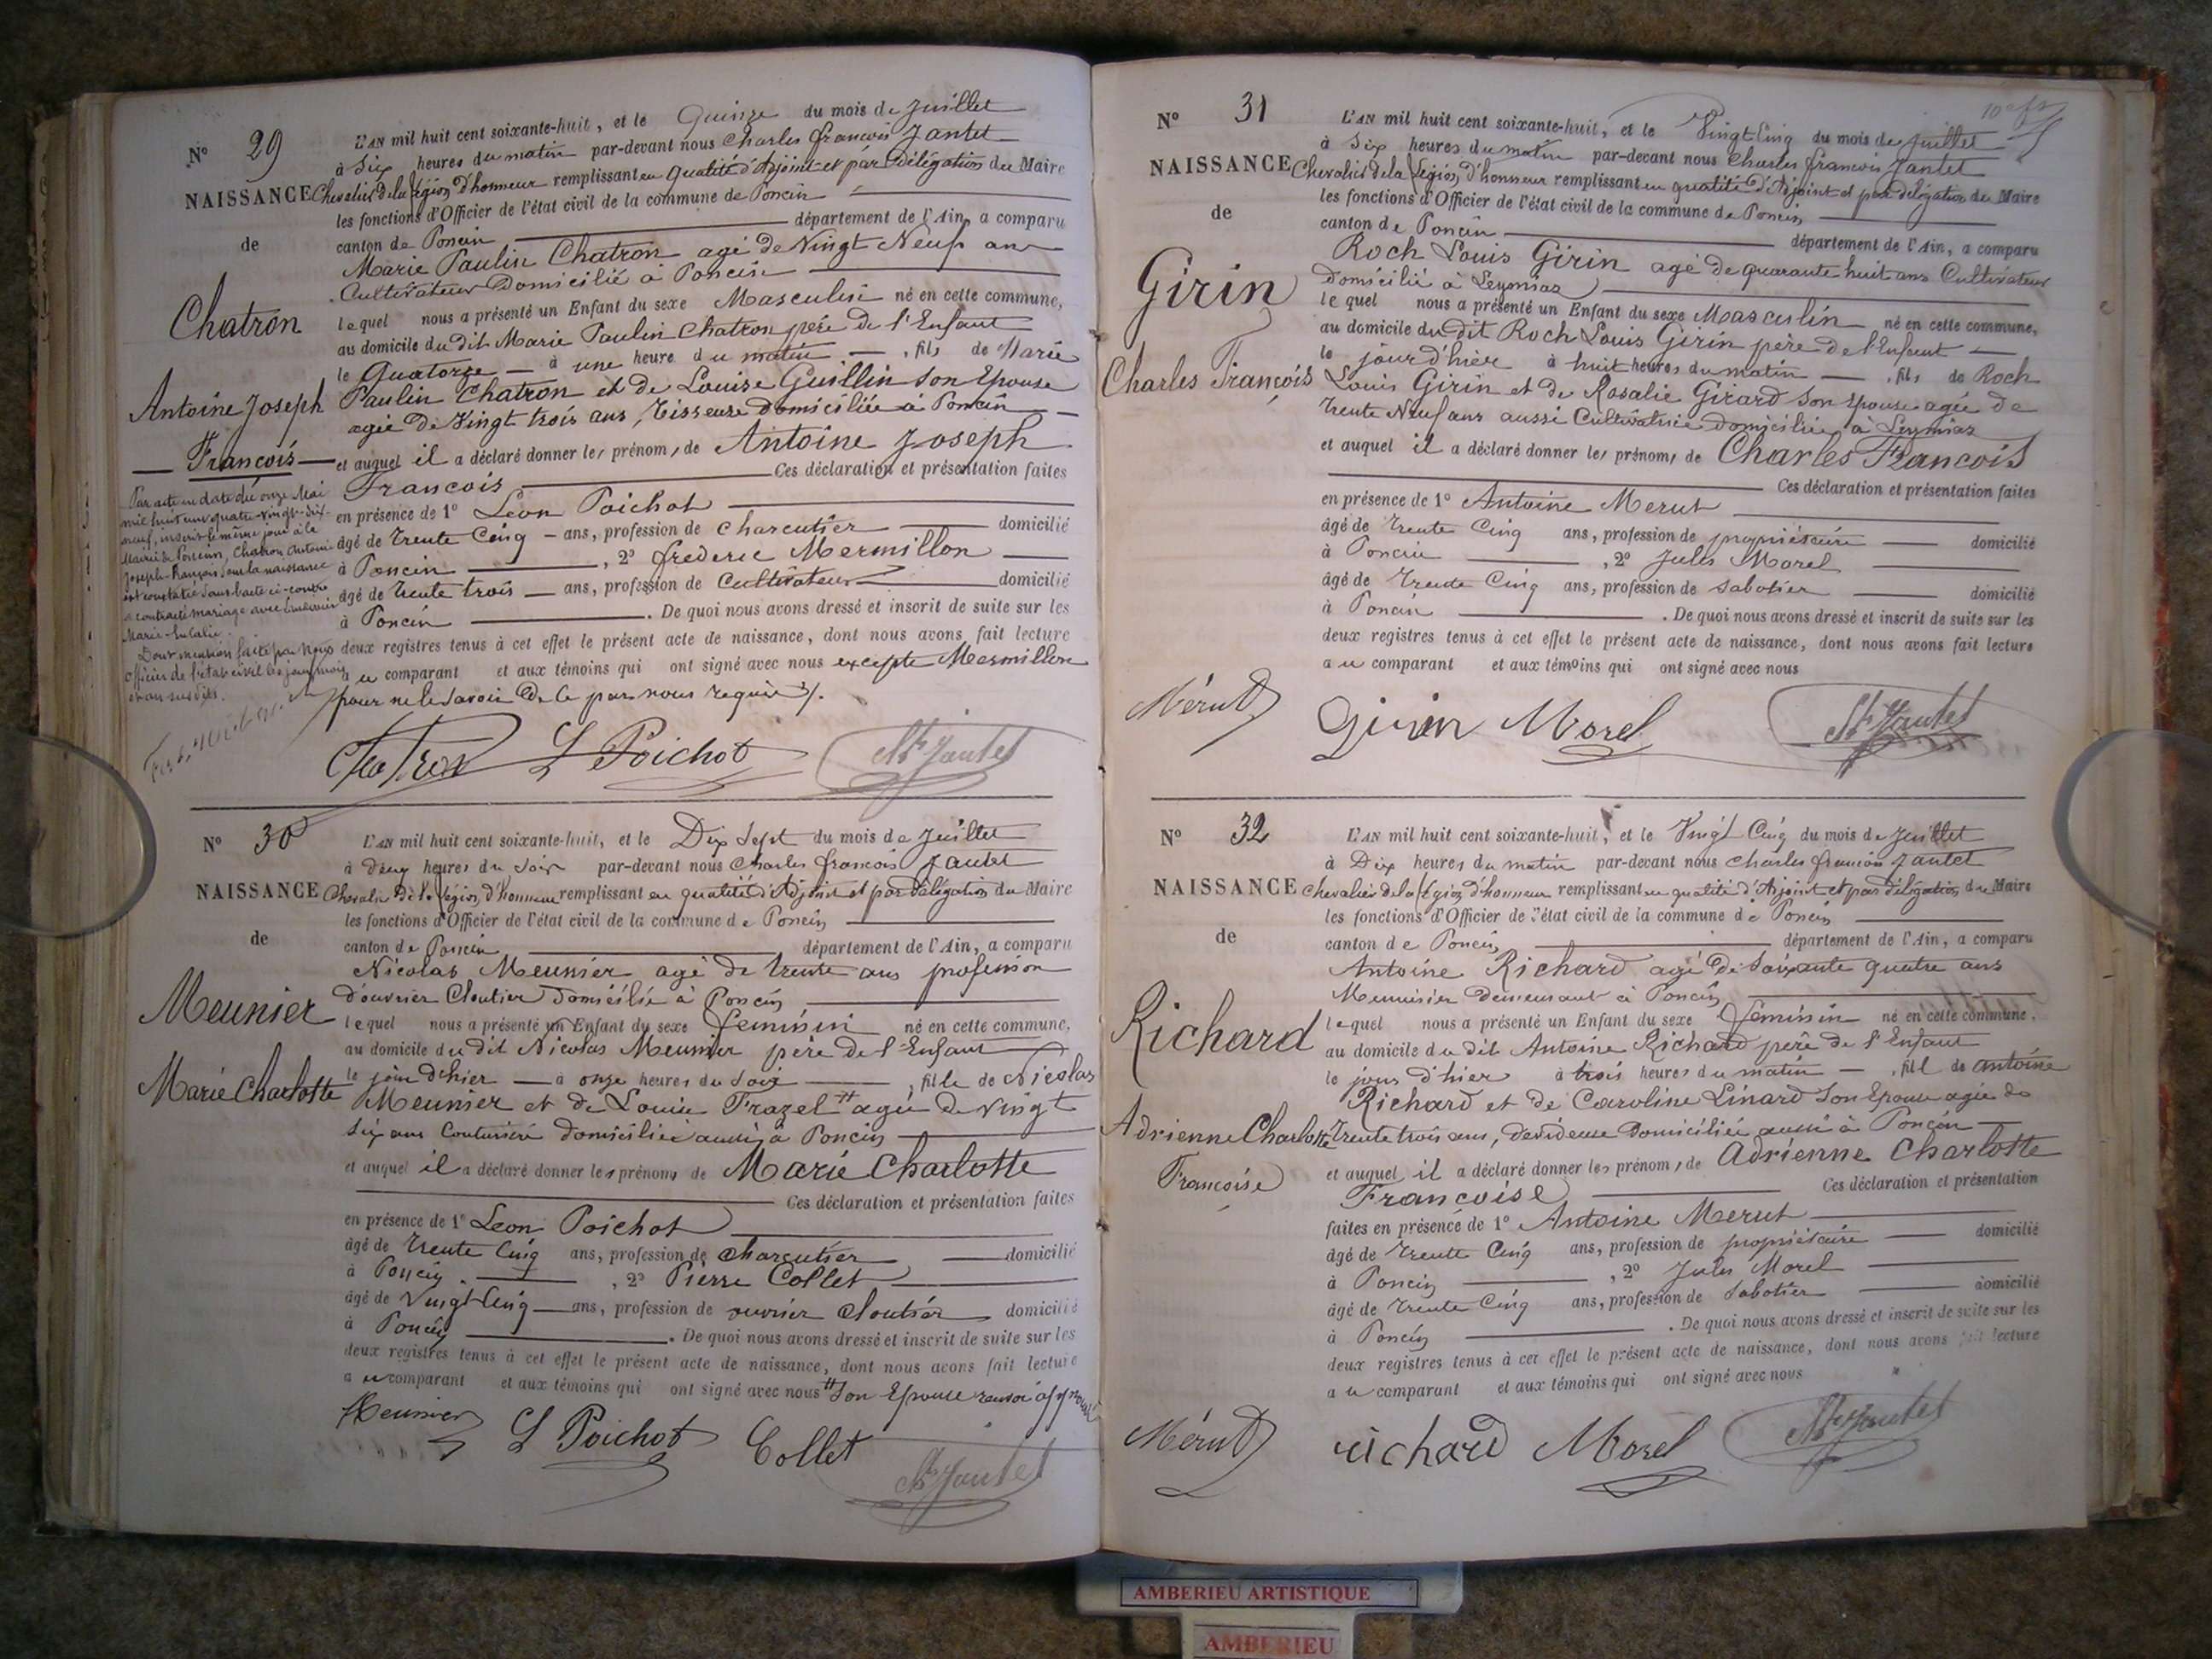 N° 29
NAISSANCE
de
Chatron
Antoine Joseph
François
Par acte en date du onze Mai
mil huit cent quatre-vingt-dix-
neuf, inscrit le même jour à la
Mairie de Poncin, Chatron Antoine
Joseph-François dont la naissance
est constatée dans l'acte ci-contre
a contracté mariage avec
Marie-Eulalie.
Dont mention faite par Nous
officier de l'état civil les jour, mois
et an susdits.
L'AN mil huit cent soixante-huit, et le Quinze du mois de Juillet
à Six heures du matin par-devant nous Charles françois Jantet
Chevalier de la Légion d'honneur remplissant en qualité d'Adjoint et par Délégation du Maire
les fonctions d'Officier de l'état civil de la commune de Poncin
canton de Poncin département de l'Ain, a comparu
Marie Paulin Chatron agé de Vingt Neuf ans
Cultivateur Domicilié à Poncin
lequel nous a présenté un Enfant du sexe Masculin né en cette commune,
au domicile du dit Marie Paulin Chatron père de l'Enfant
le Quatorze à une heure du matin, fils de Marie
Paulin Chatron et de Louise Guillin son Epouse
agée de Vingt trois ans, Tisseuse domiciliée à Poncin
et auquel il a déclaré donner les prénoms de Antoine Joseph
François Ces déclaration et présentation faites
en présence de 1° Léon Poichot
âgé de trente Cinq ans, profession de charcutier domicilié
à Poncin, 2° frederic Mermillon
âgé de trente trois ans, profession de Cultivateur domicilié
à Poncin. De quoi nous avons dressé et inscrit de suite sur les
deux registres tenus à cet effet le présent acte de naissance, dont nous avons fait lecture
au comparant et aux témoins qui ont signé avec nous excepté Mermillon
pour ne le savoir De ce par nous requis ./.
Chatron L Poichot Jantet
N° 30
NAISSANCE
de
Meunier
Marie Charlotte
L'AN mil huit cent soixante-huit, et le Dix Sept du mois de Juillet
à deux heures du Soir par-devant nous Charles françois Jantet
Chevalier de la Légion d'honneur remplissant en qualité d'Adjoint et par Délégation du Maire
les fonctions d'Officier de l'état civil de la commune de Poncin
canton de Poncin département de l'Ain, a comparu
Nicolas Meunier agé de trente ans profession
d'ouvrier Cloutier Domicilié à Poncin
lequel nous a présenté un Enfant du sexe feminin né en cette commune,
au domicile du dit Nicolas Meunier père de l'Enfant
le jour d'hier à onze heures du Soir, fille de Nicolas
Meunier et de Louise Frazel # agée de vingt
Six ans Couturière domiciliée aussi à Poncin
et auquel il a déclaré donner les prénoms de Marie Charlotte
Ces déclaration et présentation faites
en présence de 1° Leon Poichot
âgé de trente Cinq ans, profession de charcutier domicilié
à Poncin, 2° Pierre Collet
âgé de Vingt Cinq ans, profession de ouvrier cloutier domicilié
à Poncin. De quoi nous avons dressé et inscrit de suite sur les
deux registres tenus à cet effet le présent acte de naissance, dont nous avons fait lecture
au comparant et aux témoins qui ont signé avec nous # Son Epouse renvoi approuvé
Meunier L Poichot Collet Jantet
N° 31
NAISSANCE
de
Girin
Charles François
L'AN mil huit cent soixante-huit, et le Vingt Cinq du mois de Juillet
à Six heures du matin par-devant nous Charles françois Jantet
Chevalier de la Légion d'honneur remplissant en qualité d'Adjoint et par délégation du Maire
les fonctions d'Officier de l'état civil de la commune de Poncin
canton de Poncin département de l'Ain, a comparu
Roch Louis Girin agé de quarante huit ans Cultivateur
Domicilié à Leymiaz
lequel nous a présenté un Enfant du sexe Masculin né en cette commune,
au domicile du dit Roch Louis Girin père de l'Enfant
le jour d'hier à huit heures du matin, fils de Roch
Louis Girin et de Rosalie Girard Son Epouse agée de
trente Neuf ans aussi Cultivatrice domiciliée à Leymiaz
et auquel il a déclaré donner les prénoms de Charles François
Ces déclaration et présentation faites
en présence de 1° Antoine Merut
âgé de trente Cinq ans, profession de propriétaire domicilié
à Poncin, 2° Jules Morel
âgé de trente Cinq ans, profession de Sabotier domicilié
à Poncin. De quoi nous avons dressé et inscrit de suite sur les
deux registres tenus à cet effet le présent acte de naissance, dont nous avons fait lecture
au comparant et aux témoins qui ont signé avec nous
Mérut Girin Morel Jantet
N° 32
NAISSANCE
de
Richard
Adrienne Charlotte
Françoise
L'AN mil huit cent soixante-huit, et le Vingt Cinq du mois de Juillet
à Dix heures du matin par-devant nous Charles françois Jantet
Chevalier de la Légion d'honneur remplissant en qualité d'Adjoint et par délégation du Maire
les fonctions d'Officier de l'état civil de la commune de Poncin
canton de Poncin département de l'Ain, a comparu
Antoine Richard agé de Soixante quatre ans
Menuisier demeurant à Poncin
lequel nous a présenté un Enfant du sexe féminin né en cette commune,
au domicile du dit Antoine Richard père de l'Enfant
le jour d'hier à trois heures du matin, fill de Antoine
Richard et de Caroline Linard Son Epouse agée de
trente trois ans, devideuse Domiciliée aussi à Poncin
et auquel il a déclaré donner les prénoms de Adrienne Charlotte
Françoise Ces déclaration et présentation
faites en présence de 1° Antoine Merut
âgé de trente Cinq ans, profession de propriétaire domicilié
à Poncin, 2° Jules Morel
âgé de trente Cinq ans, profession de Sabotier domicilié
à Poncin. De quoi nous avons dressé et inscrit de suite sur les
deux registres tenus à cet effet le présent acte de naissance, dont nous avons fait lecture
au comparant et aux témoins qui ont signé avec nous
Mérut richard Morel Jantet
AMBERIEU ARTISTIQUE
AMBERIEU